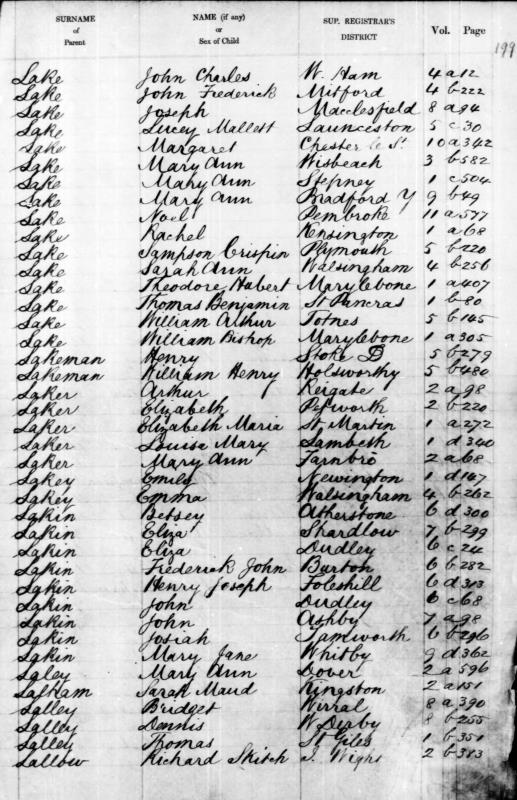 SURNAME of Parent NAME (if any) or Sex of Child SUP. REGISTRAR'S DISTRICT Vol. Page
199
Lake John Charles W. Ham 4 a 12
Lake John Frederick Mitford 4 b 222
Lake Joseph Macclesfield 8 a 94
Lake Lucey Mallett Launceston 5 c 30
Lake Margaret Chester le St 10 a 342
Lake Mary Ann Wisbeach 3 b 582
Lake Mary Ann Stepney 1 c 504
Lake Mary Ann Bradford Y 9 b 49
Lake Noel Pembroke 11 a 577
Lake Rachel Kensington 1 a 68
Lake Sampson Crispin Plymouth 5 b 220
Lake Sarah Ann Walsingham 4 b 256
Lake Theodore Hubert Marylebone 1 a 407
Lake Thomas Benjamin St Pancras 1 b 80
Lake William Arthur Totnes 5 b 145
Lake William Bishop Marylebone 1 a 305
Lakeman Henry Stoke D 5 b 279
Lakeman William Henry Holsworthy 5 b 480
Laker Arthur Reigate 2 a 98
Laker Elizabeth Petworth 2 b 220
Laker Elizabeth Maria St Martin 1 a 272
Laker Louisa Mary Lambeth 1 d 340
Laker Mary Ann Farnbro 2 a 68
Lakey Emily Newington 1 d 147
Lakey Emma Walsingham 4 b 262
Lakin Betsey Atherstone 6 d 300
Lakin Eliza Shardlow 7 b 299
Lakin Eliza Dudley 6 c 24
Lakin Frederick John Burton 6 b 282
Lakin Henry Joseph Foleshill 6 d 303
Lakin John Dudley 6 c 68
Lakin John Ashby 7 a 98
Lakin Josiah Tamworth 6 b 296
Lakin Mary Jane Whitby 9 d 362
Laley Mary Ann Dover 2 a 596
Laľham Sarah Maud Kingston 2 a 151
Lalley Bridget Wirral 8 a 390
Lalley Dennis W. Derby 8 b 255
Lalley Thomas St Giles 1 b 351
Lallow Richard Skitch I. Wight 2 b 383